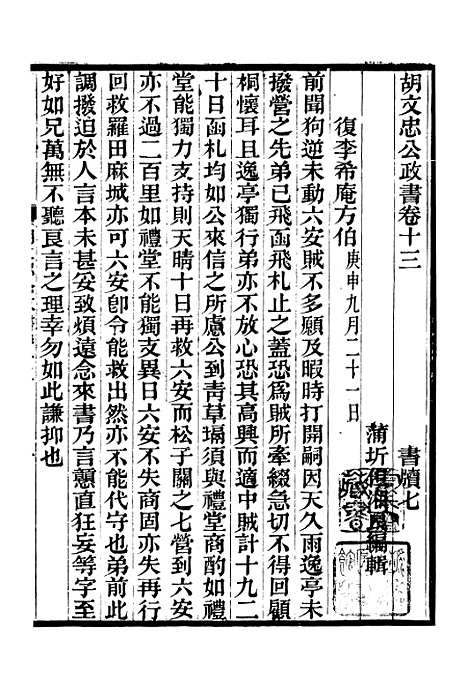 胡文忠公政書卷十三　書牘七
蒲圻但湘良編輯
復李希庵方伯庚申九月二十一日
前聞狗逆未動六安賊不多願及暇時打開嗣因天久雨逸亭未
撥營之先弟已飛函飛札止之蓋恐為賊所牽綴急切不得回顧
桐懷耳且逸亭獨行弟亦不放心恐其高興而適中賊計十九二
十日函札均如公來信之所慮公到青草塥須與禮堂商酌如禮
堂能獨力支持則天晴十日再救六安而松子關之七營到六安
亦不過二百里如禮堂不能獨支異日六安不失商固亦不失再行
回救羅田麻城亦可六安卽令能救出然亦不能代守也弟前此
調撥迫於人言本未甚妥致煩遠念來書乃言戇直狂妄等字至
好如兄萬無不聽良言之理幸勿如此謙抑也